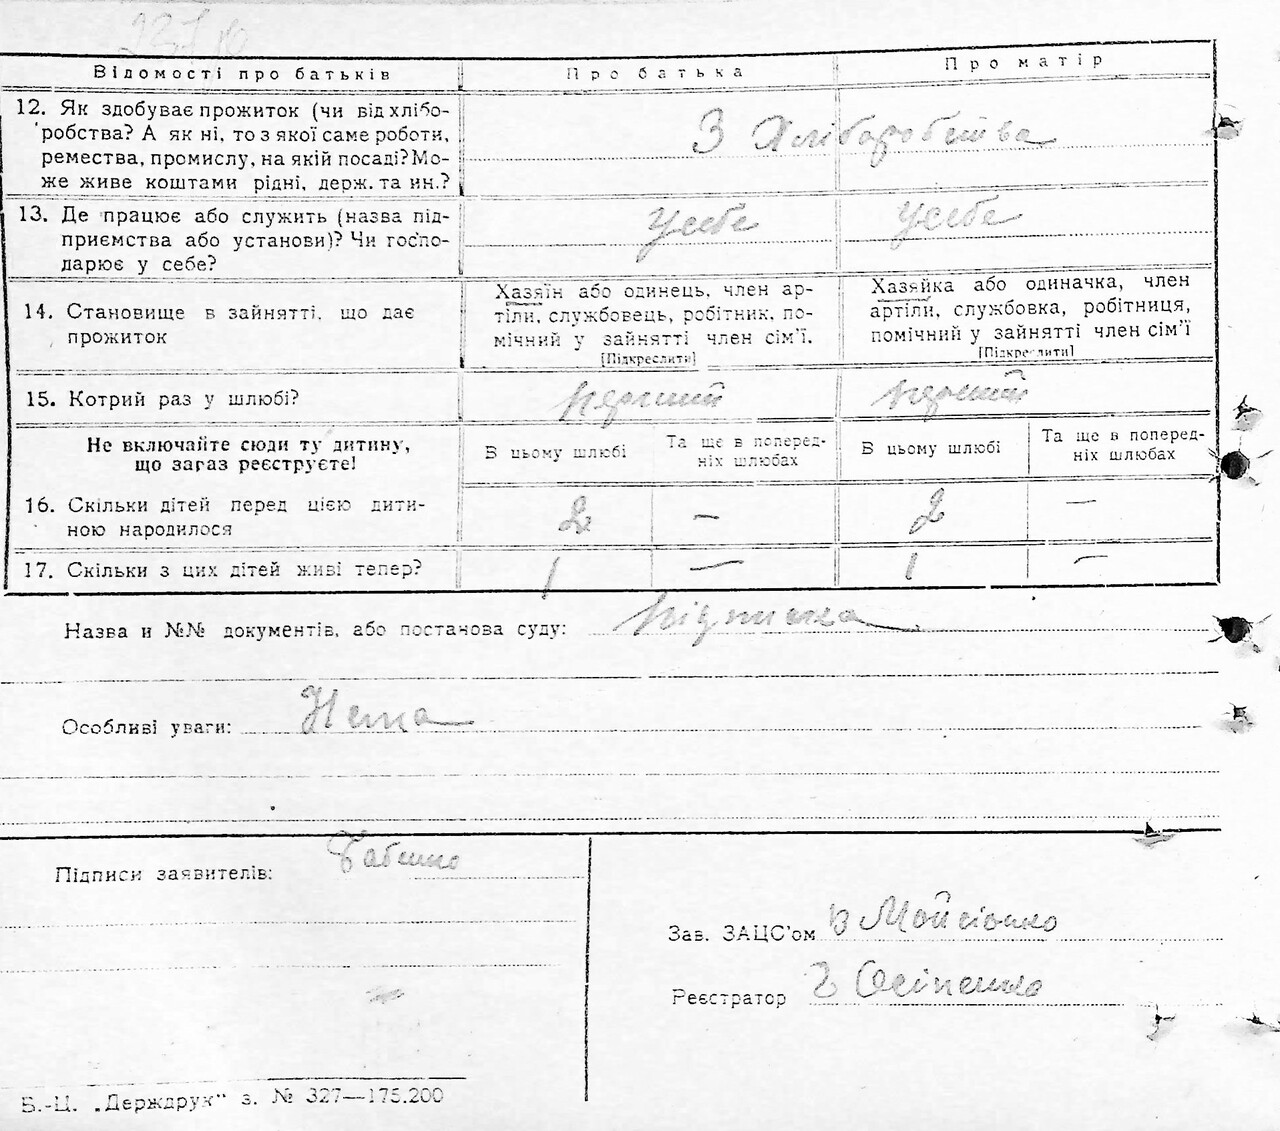 23/10
Відомості про батьків
Про батька
Про матір
12. Як здобуває прожиток (чи від хлібо-
робства? А як ні, то з якої саме роботи,
ремества, промислу, на якій посаді? Мо-
же живе коштами рідні, держ. та ин.?
З Хліборобства
13. Де працює або служить (назва під-
приємства або установи)? Чи госпо-
дарює у себе?
У себе
У себе
14. Становище в зайнятті, що дає
прожиток
Хазяїн або одинець, член ар-
тіли, службовець, робітник, по-
мічний у зайнятті член сім'ї.
[Підкреслити]
Хазяйка або одиначка, член
артіли, службовка, робітниця,
помічний у зайнятті член сім'ї
[Підкреслити]
15. Котрий раз у шлюбі?
перший
перший
Не включайте сюди ту дитину,
що загаз реєструєте!
В цьому шлюбі
Та ще в поперед-
ніх шлюбах
В цьому шлюбі
Та ще в поперед-
ніх шлюбах
16. Скільки дітей перед цією дити-
ною народилося
2
—
2
—
17. Скільки з цих дітей живі тепер?
1
—
1
—
Назва и №№ документів, або постанова суду: Підписка
Особливі уваги: Нема
Підписи заявителів:
Зав. ЗАЦС'ом В Мойсієнко
Реєстратор Осіпенко
Б.-Ц. „Держдрук" з. № 327—175.200